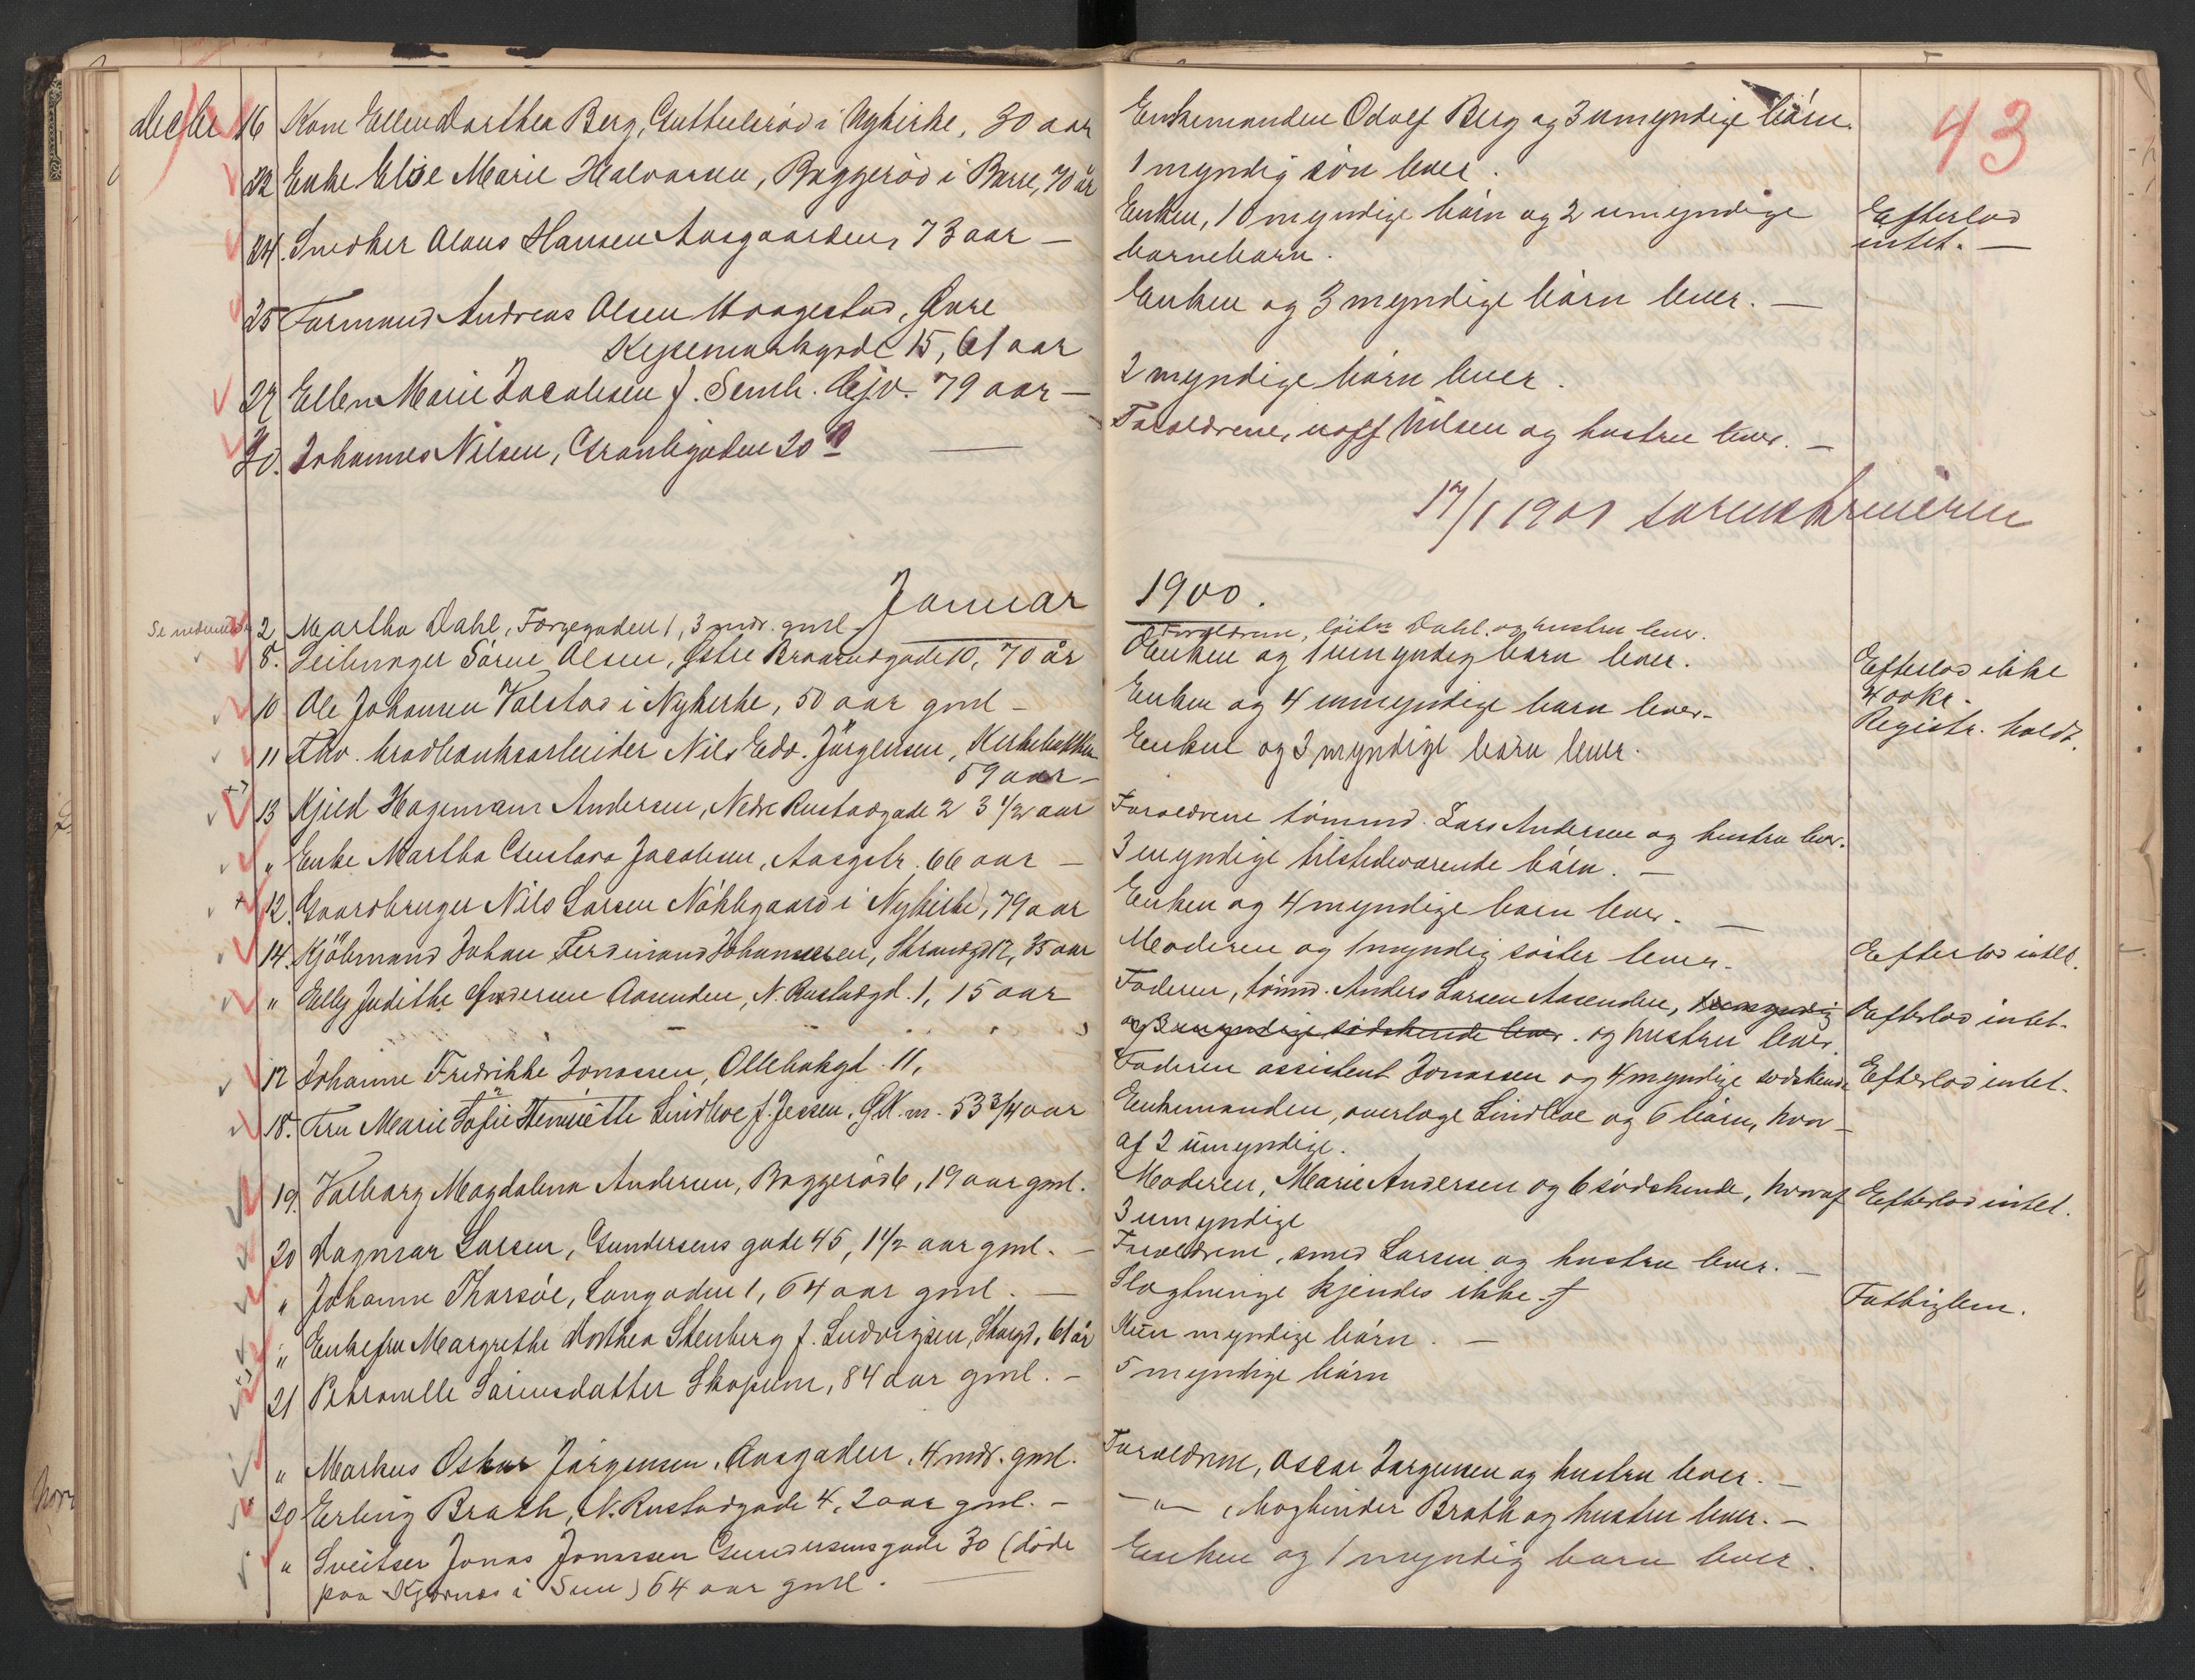 Decbr 16 Kone Ellen Dorthea Berg, Guttulsrød i Nykirke, 30 aar
22 Enke Elise Marie Halvorsen, Baggerød i Borre, 70 år
24. Snedker Olaus Hansen Aasgaarden, 73 aar —
25 Formand Andreas Olsen Haagestad, Øvre
Keysemarkgade 15, 61 aar
27 Ellen Marie Jacobsen f. Semb. 79 aar —
30. Johannes Nilsen, Granligaden 20 B —
Enkemanden Odolf Berg og 3 umyndige börn.
1 myndig sön lever.
Enken, 10 myndige börn og 2 umyndige
barnebarn.
Enken og 3 myndige börn lever. —
2 myndige börn lever.
Forældrene, Nilsen og hustru lever. —
43
Efterlod
intet. —
17/1 1901 sorenskriveren
Januar 1900.
2 Martha Dahl, Færgegaden 1, 3 mdr. gml.
8. Seilmager Sörne Olsen, Østre Braarudgade 10, 70 år
10 Ole Johansen Valstad i Nykirke, 50 aar gml —
11 Fhv. brodbænksarbeider Nils Edv. Jörgensen, Kirkebakken
59 aar —
13 Kjeld Hagemann Andersen, Nedre Rustadgade 2 3 1/2 aar
" Enke Martha Gustava Jacobsen, Aasgstr. 66 aar —
12. Gaardbruger Nils Larsen Nöklegaard i Nykirke, 79 aar
14. Kjöbmand Johan Ferdinand Johannesen, Strandgd 12, 35 aar
" Elly Judithe Andersen Aasenden, N. Rustadgd. 1, 15 aar
17 Johanne Fredrikke Jonassen, Ollebakgd. 11,
18. Fru Marie Sofie Henriette Lindboe f. Jessen, G.K.m. 53 3/4 aar
19. Valborg Magdalena Andersen, Baggerödb, 19 aar gml.
20 Dagmar Larsen, Gundersens gade 45, 1 1/2 aar gml. —
" Johanne Tharsöe, Langaden 1, 64 aar gml. —
" Enkefru Margrethe Dorthea Stenberg f. Ludvigsen, Storgd. 61 år
21 Petronelle Sörensdatter Skopum, 84 aar gml. —
" Markus Oskar Jörgensen, Aasgaden, 4 mdr. gml.
20 Erling Brath, N. Rustadgade 4, 2 aar gml. —
" Sveitser Jonas Jonassen Gundersensgade 30 (döde
paa Kjærnes i Sem) 64 aar gml. —
Forældrene, Dahl og hustru lever.
Enken og 1 umyndig barn lever.
Enken og 4 umyndige barn lever —
Enken og 3 myndige börn lever.
Forældrene tömmd. Lars Andersen og hustru lever.
3 myndige tilstedeværende börn. —
Enken og 4 myndige barn lever. —
Moderen og 1 myndig söster lever —
Faderen, tömmd. Anders Larsen Aasenden,
og 3 umyndige södskende lever. og hustru lever.
Faderen assistent Jonassen og 4 myndige södskende
Enkemanden, overlæge Lindboe og 6 börn, hvor-
af 2 umyndige.
Moderen, Marie Andersen og 6 södskende, hvoraf
3 umyndige
Forældrene, smed Larsen og hustru lever. —
Slægtninge kjendes ikke.
Kun myndige börn. —
5 myndige börn
Forældrene, Oscar Jörgensen og hustru lever. —
— " — , bogbinder Brath og hustru lever. —
Enken og 1 myndig barn lever.
Efterlod ikke
400 kr.
Registr. holdt.
Efterlod intet.
Efterlod intet.
Efterlod intet.
Efterlod intet.
Fattiglem.